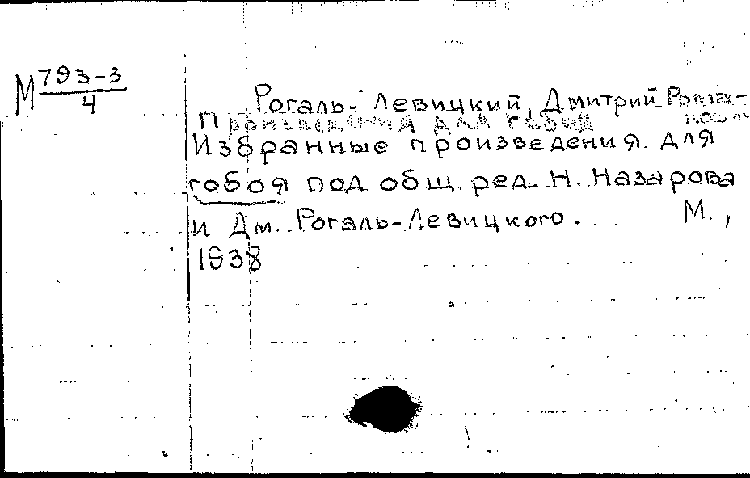 М 793-3
4
Рогаль-Левицкий, Дмитрий Рома-
нович
Произведения для гобоя
Избранные произведения для
гобоя под общ. ред. Н. Назарова
и Дм. Рогаль-Левицкого. М.,
1938